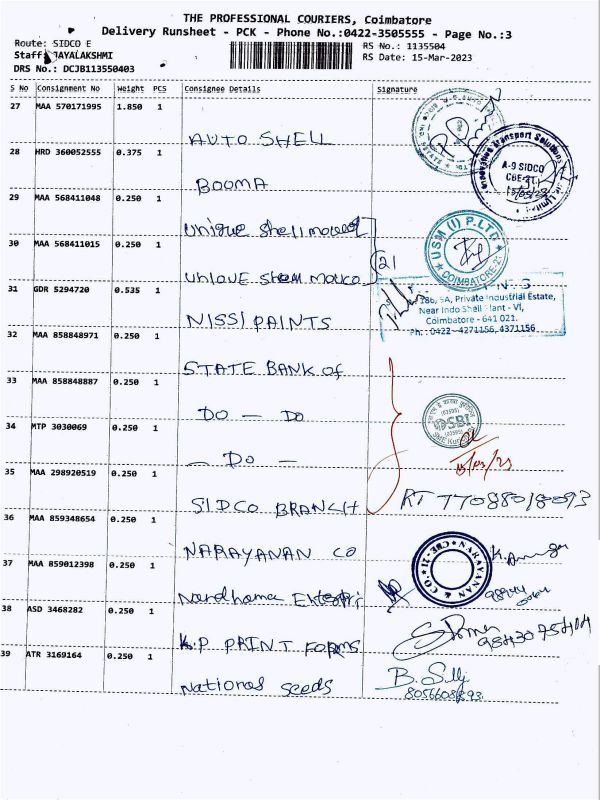 THE PROFESSIONAL COURIERS, Coimbatore
Delivery Runsheet - PCK - Phone No.:0422-3505555 - Page No.:3
Route: SIDCO E
RS No.: 1135504
Staff: JAYALAKSHMI
RS Date: 15-Mar-2023
DRS No.: DCJB113550403
S No Consignment No Weight PCS Consignee Details Signature
27 MAA 570171995 1.850 1
AUTO SHELL
28 HRD 360052555 0.375 1
BOOMA
A-9 SIDCO
CBE-21
29 MAA 568411048 0.250 1
unique shell
USM (I) P.LTD
COIMBATORE-21
30 MAA 568411015 0.250 1
21
31 GDR 5294720 0.535 1
NISSI PAINTS
186, 5A, Private Industrial Estate,
Near Indo Shell Plant - VI,
Coimbatore - 641 021.
Ph: 0422-4271156, 4371156
32 MAA 858848971 0.250 1
STATE BANK of
33 MAA 858848887 0.250 1
DO - DO
34 MTP 3030069 0.250 1
- DO -
SBI
15/03/23
35 MAA 298920519 0.250 1
SIDCO BRANCH
RT 77088018093
36 MAA 859348654 0.250 1
NARAYANAN CO
NARAYANAN & CO. CBE-21
37 MAA 859012398 0.250 1
38 ASD 3468282 0.250 1
K.P PRINT FORMS
39 ATR 3169164 0.250 1
National seeds